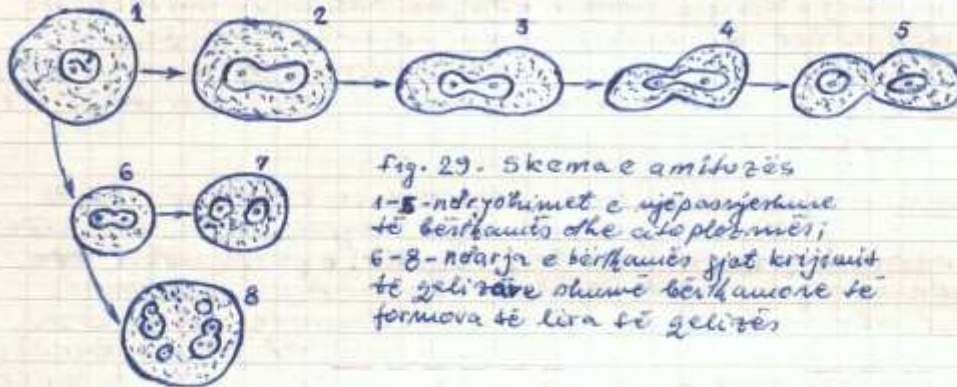 1 2 3 4 5
6 7
8
fig. 29. Skema e amitozës
1-5-ndryshimet e njëpasnjeshme
të bërthamës dhe citoplazmës;
6-8-ndarja e bërthamës gjat krijimit
të qelizave shumë bërthamore të
formova të lira të qelizës